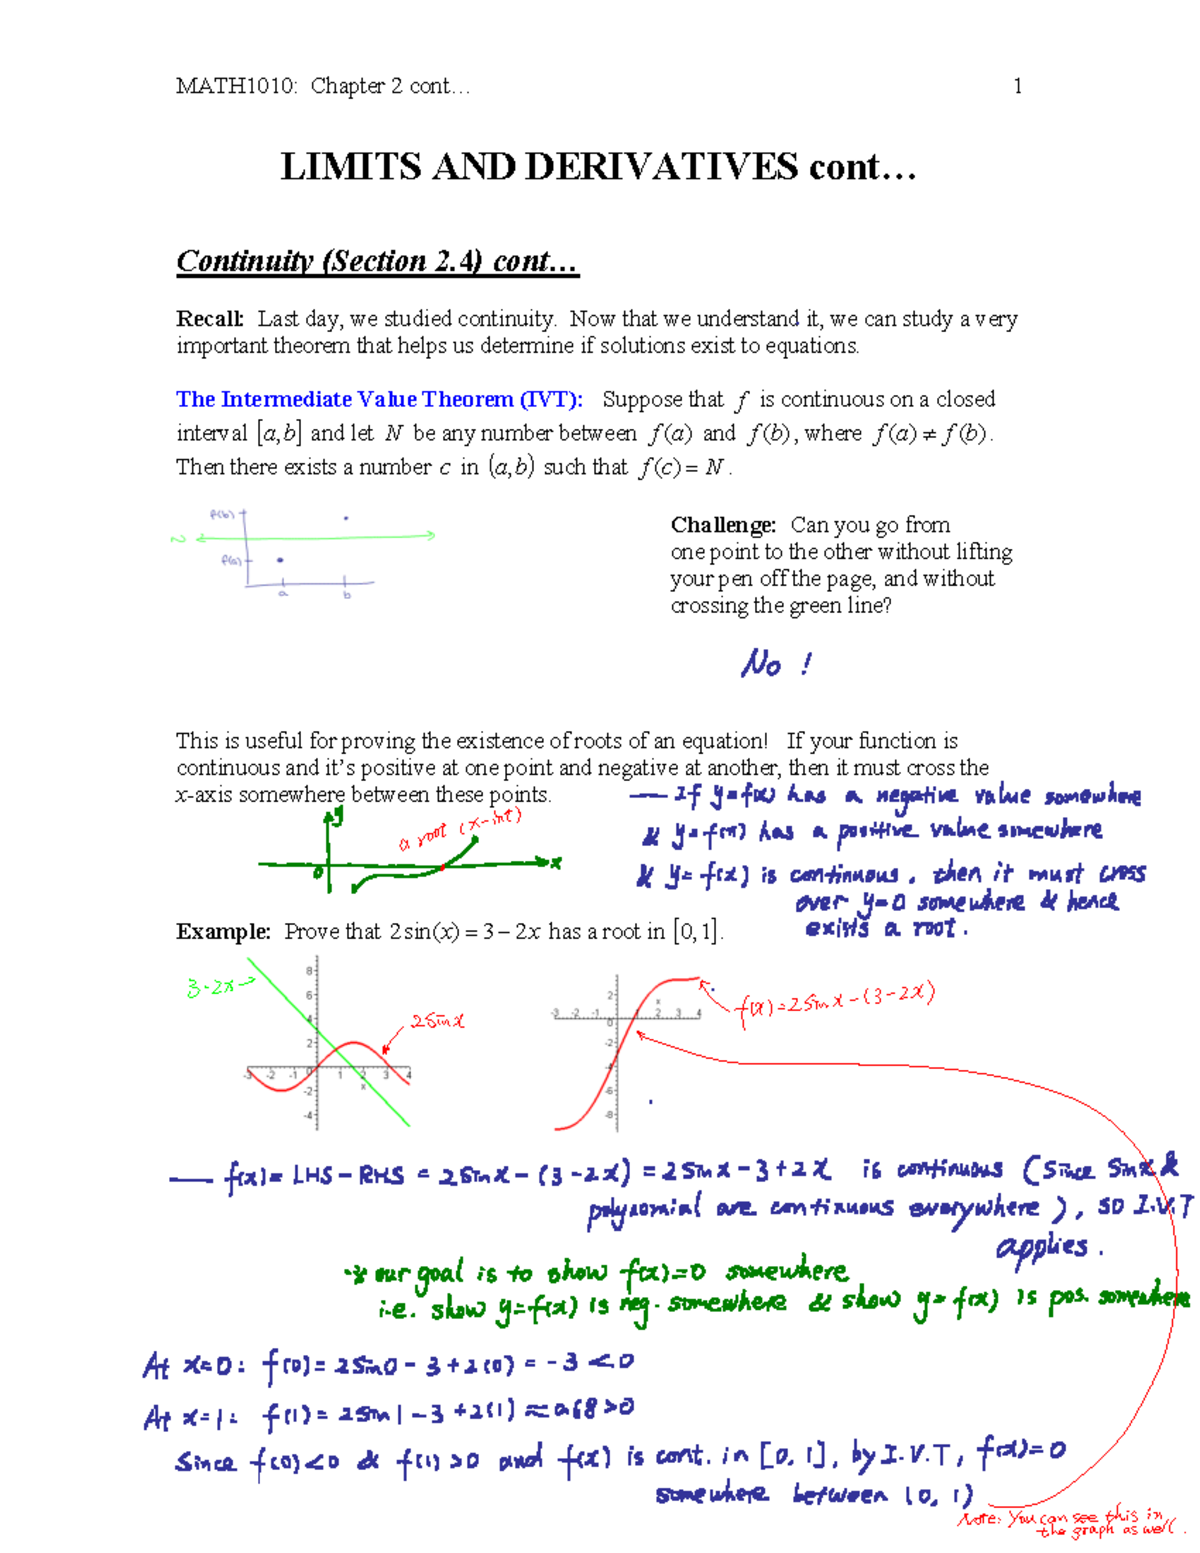 MATH1010: Chapter 2 cont… 1
LIMITS AND DERIVATIVES cont…
Continuity (Section 2.4) cont…
Recall: Last day, we studied continuity. Now that we understand it, we can study a very
important theorem that helps us determine if solutions exist to equations.
The Intermediate Value Theorem (IVT): Suppose that f is continuous on a closed
interval [a,b] and let N be any number between f(a) and f(b), where f(a) ≠ f(b).
Then there exists a number c in (a,b) such that f(c) = N.
f(b)
N
f(a)
a b
Challenge: Can you go from
one point to the other without lifting
your pen off the page, and without
crossing the green line?
No !
This is useful for proving the existence of roots of an equation! If your function is
continuous and it's positive at one point and negative at another, then it must cross the
x-axis somewhere between these points.
— If y=f(x) has a negative value somewhere
& y=f(x) has a positive value somewhere
& y=f(x) is continuous, then it must cross
over y=0 somewhere & hence
exists a root.
y
a root (x-int)
0 x
Example: Prove that 2 sin(x) = 3 − 2x has a root in [0,1].
3-2x
2sinx
8
6
4
2
-3 -2 -1 0 1 2 3 4
x
-2
-4
f(x)=2sinx-(3-2x)
2
x
-3 -2 -1 0 2 3 4
-2
-4
-6
-8
— f(x)= LHS - RHS = 2sinx - (3-2x) = 2sinx-3+2x is continuous (since sinx &
polynomial are continuous everywhere), so I.V.T
applies.
* our goal is to show f(x)=0 somewhere
i.e. show y=f(x) is neg. somewhere & show y=f(x) is pos. somewhere
At x=0: f(0)= 2sin0 - 3+2(0) = -3 <0
At x=1: f(1)= 2sin1-3+2(1) ≈0.68>0
Since f(0)<0 & f(1)>0 and f(x) is cont. in [0,1], by I.V.T, f(x)=0
somewhere between (0,1)
Note: You can see this in
the graph as well.